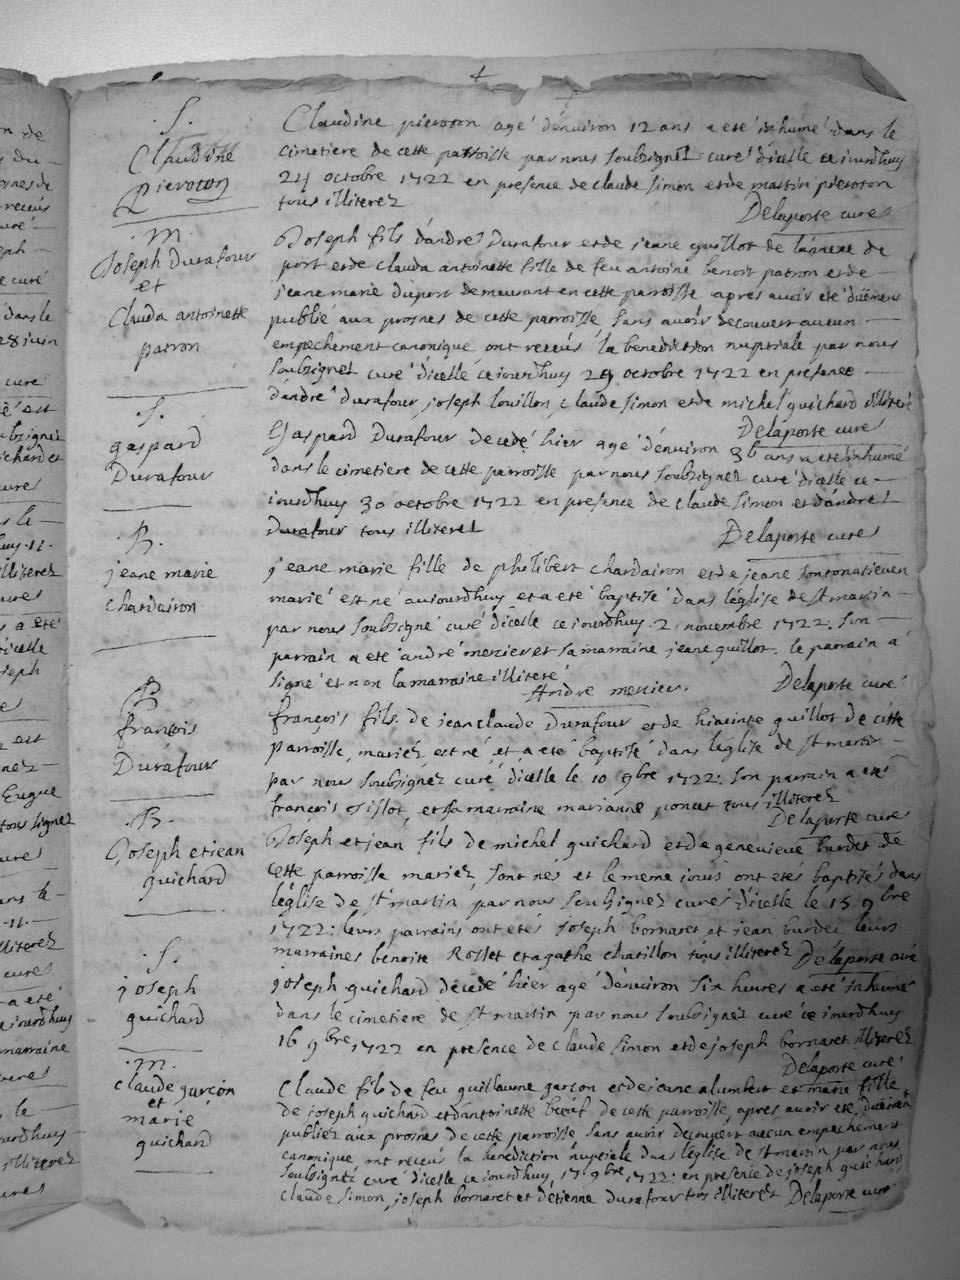 .S.
Claudine
pierozon
Claudine pierozon agé d'environ 12 ans a eté inhumé dans le
cimetiere de cette parroisse par nous soubsignez curé dicelle ce iourdhuy
24 octobre 1722 en presence de claude simon et de martin pierozon
tous illiterez
Delaporte curé
.M.
Joseph Durafour
et
Clauda antoinette
patron
Joseph fils d'andré Durafour et de jeane guillot de l'anexe de
port et de clauda antoinette fille de feu antoine benoit patron et de
jeane marie duport demeurant en cette parroisse apres avoir eté duëment
publie aux prosnes de cette parroisse sans avoir decouvert aucun
empechement canonique ont receus la benediction nuptiale par nous
soubsignez curé dicelle ce iourdhuy 29 octobre 1722 en presence
d'andré durafour, joseph louillon, claude simon et de michel guichard illiteré
Delaporte curé
.S.
gaspard
Durafour
Gaspard Durafour decedé hier agé d'environ 36 ans a eté inhumé
dans le cimetiere de cette parroisse par nous soubsignez curé dicelle ce
iourdhuy 30 octobre 1722 en presence de claude simon et d'andré
Durafour tous illiterez
Delaporte curé
.B.
jeane marie
chardairon
jeane marie fille de philibert chardairon et de jeane
marié est né aujourdhuy et a eté baptisé dans l'église de st martin
par nous soubsigné curé dicelle ce iourdhuy 2 novembre 1722. son
parrain a eté andré mercier et sa marraine jeane guillot. le parrain a
signé et non la marraine illiteré
Andre mercier.
Delaporte curé
B
françois
Durafour
françois fils de jean claude Durafour et de hiacinte guillot de cette
parroisse, mariéz est né et a eté baptisé dans l'église de st martin
par nous soubsignez curé dicelle le 10 9bre 1722: son parrain a eté
françois et sa marraine marianne poncet tous illiterez
Delaporte curé
.B.
Joseph et jean
guichard
Joseph et jean fils de michel guichard et de genevieve burdet de
cette parroisse mariez, sont nés et le meme iours ont etés baptisés dans
l'église de st martin par nous soubsignez curés dicelle le 15 9bre
1722: leurs parrains ont etés joseph bornaret et jean burdet leurs
marraines benoite Rosset et agathe chatillon tous illiterez Delaporte curé
.S.
joseph
guichard
joseph guichard decedé hier agé d'environ six heures a eté inhumé
dans le cimetiere de st martin par nous soubsignez curé ce iourdhuy
16 9bre 1722 en presence de claude simon et de joseph bornaret illiterez
Delaporte curé
.M.
claude garçon
et
marie
guichard
Claude fils de feu guillaume garçon et de jeane alumbert et marie fille
de joseph guichard et d'antoinette bœuf de cette parroisse, apres avoir eté duëment
publiez aux prosnes de cette parroisse sans avoir decouvert aucun empechement
canonique ont receus la benediction nuptiale dans l'église de st martin par nous
soubsignéz curé dicelle ce iourdhuy, 17 9bre 1722: en presence de joseph guichard
claude simon, joseph bornaret et d'etienne durafour tous illiterez Delaporte curé